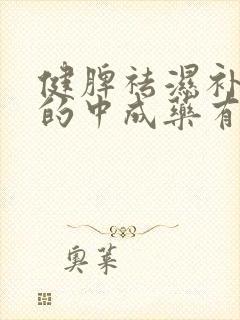 健脾祛濕补
的中成藥有
奥莱